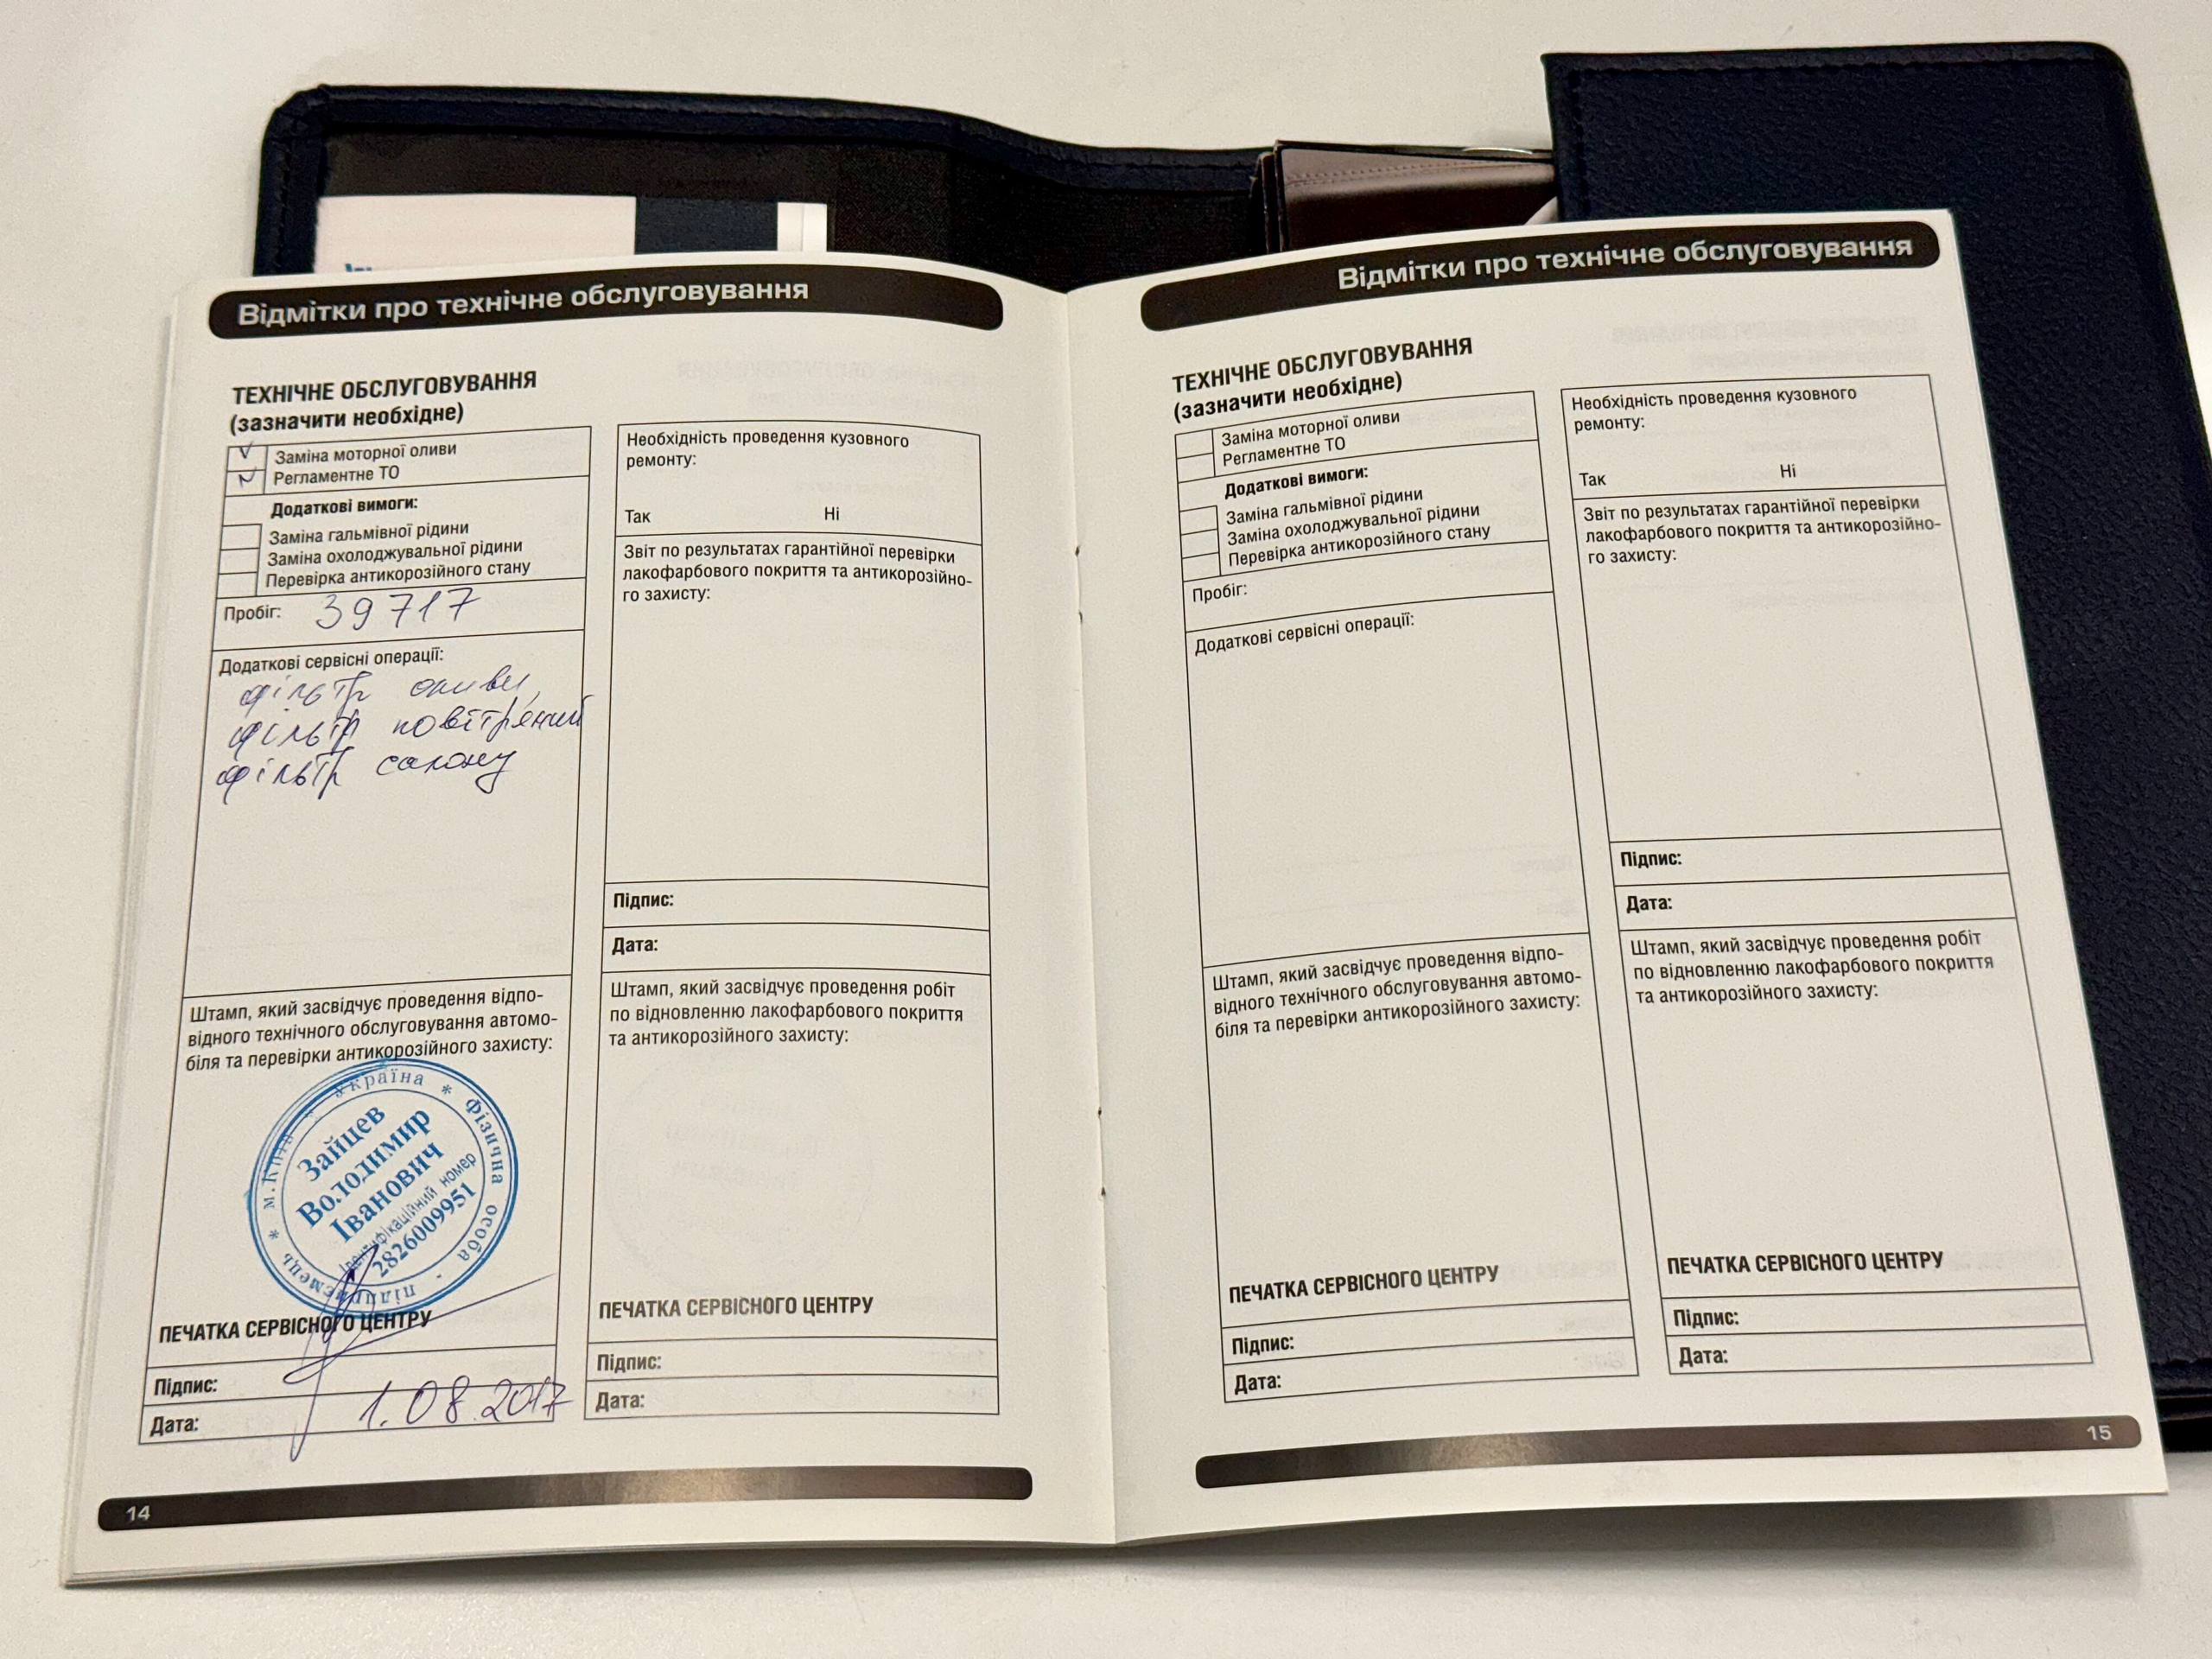 Відмітки про технічне обслуговування
ТЕХНІЧНЕ ОБСЛУГОВУВАННЯ
(зазначити необхідне)
V Заміна моторної оливи
V Регламентне ТО
Додаткові вимоги:
Заміна гальмівної рідини
Заміна охолоджувальної рідини
Перевірка антикорозійного стану
Пробіг: 39717
Додаткові сервісні операції:
фільтр оливи,
фільтр повітряний
фільтр салону
Штамп, який засвідчує проведення відпо-
відного технічного обслуговування автомо-
біля та перевірки антикорозійного захисту:
м.Київ * Україна * Фізична особа - підприємець *
Зайцев
Володимир
Іванович
Ідентифікаційний номер
2826009951
ПЕЧАТКА СЕРВІСНОГО ЦЕНТРУ
Підпис:
Дата: 1.08.2017
Необхідність проведення кузовного
ремонту:
Так Ні
Звіт по результатах гарантійної перевірки
лакофарбового покриття та антикорозійно-
го захисту:
Підпис:
Дата:
Штамп, який засвідчує проведення робіт
по відновленню лакофарбового покриття
та антикорозійного захисту:
ПЕЧАТКА СЕРВІСНОГО ЦЕНТРУ
Підпис:
Дата:
14
Відмітки про технічне обслуговування
ТЕХНІЧНЕ ОБСЛУГОВУВАННЯ
(зазначити необхідне)
Заміна моторної оливи
Регламентне ТО
Додаткові вимоги:
Заміна гальмівної рідини
Заміна охолоджувальної рідини
Перевірка антикорозійного стану
Пробіг:
Додаткові сервісні операції:
Штамп, який засвідчує проведення відпо-
відного технічного обслуговування автомо-
біля та перевірки антикорозійного захисту:
ПЕЧАТКА СЕРВІСНОГО ЦЕНТРУ
Підпис:
Дата:
Необхідність проведення кузовного
ремонту:
Так Ні
Звіт по результатах гарантійної перевірки
лакофарбового покриття та антикорозійно-
го захисту:
Підпис:
Дата:
Штамп, який засвідчує проведення робіт
по відновленню лакофарбового покриття
та антикорозійного захисту:
ПЕЧАТКА СЕРВІСНОГО ЦЕНТРУ
Підпис:
Дата:
15